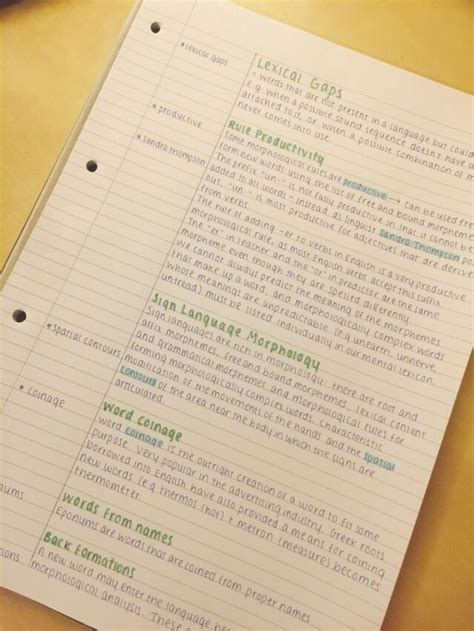 *lexical gaps
*productive
*sandra thompson
*spatial contours
* coinage
Lexical Gaps
* words that are not present in a language but could
e.g. when a possible sound sequence doesn't have
attached to it, or when a possible combination of m
never comes into use.
Rule Productivity
some morphological rules are productive → can be used free
form new words using the list of free and bound morphem
The prefix -un- is not fully productive in that it cannot be
added to all words - instead, as linguist Sandra Thompson po
out, -un- is most productive for adjectives that are deriv
from verbs.
The rule of adding -er to verbs in English is a very productive
morphological rule, as most English verbs accept this suffix.
The "er" in teacher and the "or" in predictor are the same
morpheme even though they are spelled differently.
We cannot always predict the meaning of the morphemes
that make up a word, and morphologically complex words
whose meanings are unpredictable (e.g. unearth, unnerve,
untread), must be listed individually in our mental lexicon.
Sign Language Morphology
Sign languages are rich in morphology; there are root and
affix morphemes, free and bound morphemes, lexical content
and grammatical morphemes and morphological rules for
forming morphologically complex words. Characteristic
modification of the movements of the hands and the spatial
contours of the area near the body in which the signs are
articulated.
Word Coinage
word coinage is the outright creation of a word to fit some
purpose. Very popular in the advertising industry. Greek roots
borrowed into English have also provided a means for coining
new words, (e.g. thermos (hot) + metron (measure) becomes
thermometer.
Words From names
Eponums are words that are coined from proper names
Back Formations
A new word may enter the language
morphological analysis. These